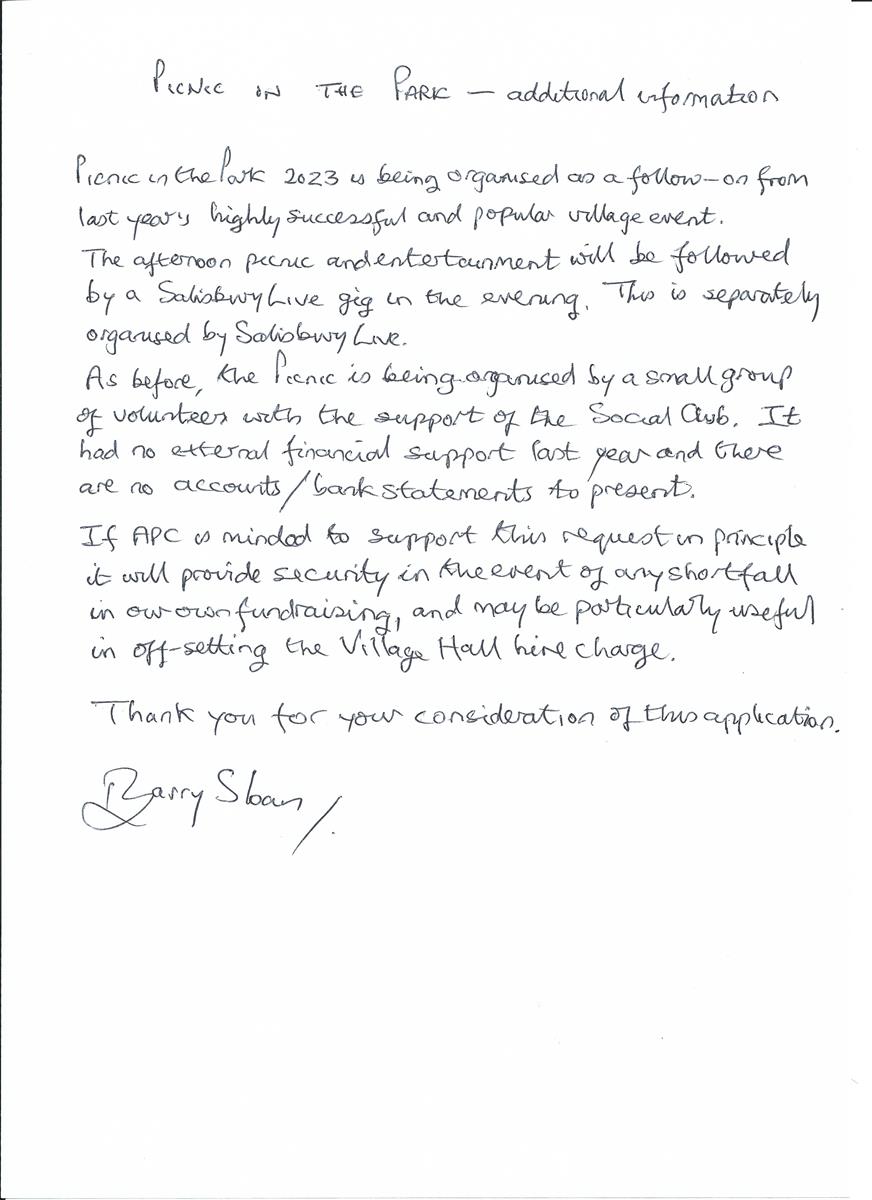 PICNIC IN THE PARK — additional information
Picnic in the Park 2023 is being organised as a follow-on from
last year's highly successful and popular village event.
The afternoon picnic and entertainment will be followed
by a Salisbury Live gig in the evening. This is separately
organised by Salisbury Live.
As before, the Picnic is being organised by a small group
of volunteers with the support of the Social Club. It
had no external financial support last year and there
are no accounts/bank statements to present.
If APC is minded to support this request in principle
it will provide security in the event of any shortfall
in our own fundraising, and may be particularly useful
in off-setting the Village Hall hire charge.
Thank you for your consideration of this application.
Barry Sloan